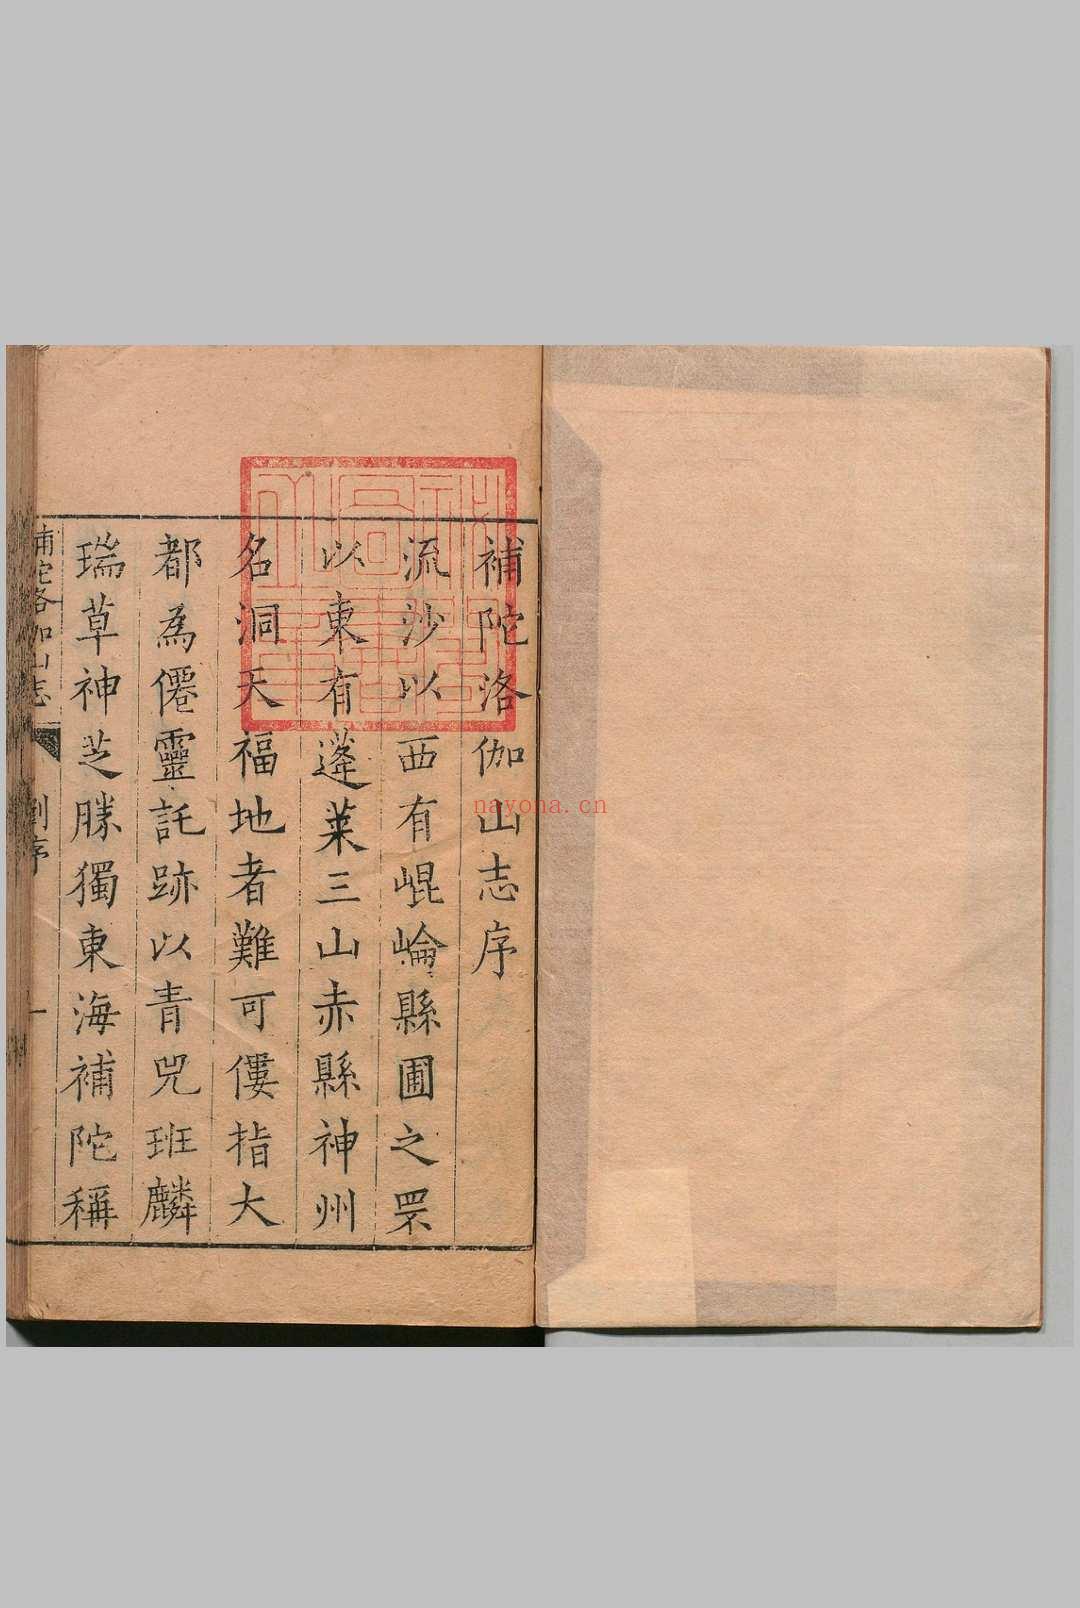 補陀洛伽山志序
流沙以西有崐崘縣圃之眾
以東有蓬萊三山赤縣神州
名洞天福地者難可僂指大
都為僊靈託跡以青兕班麟
瑞草神芝勝獨東海補陀稱
補陀洛伽山志
序
一
nayona.cn